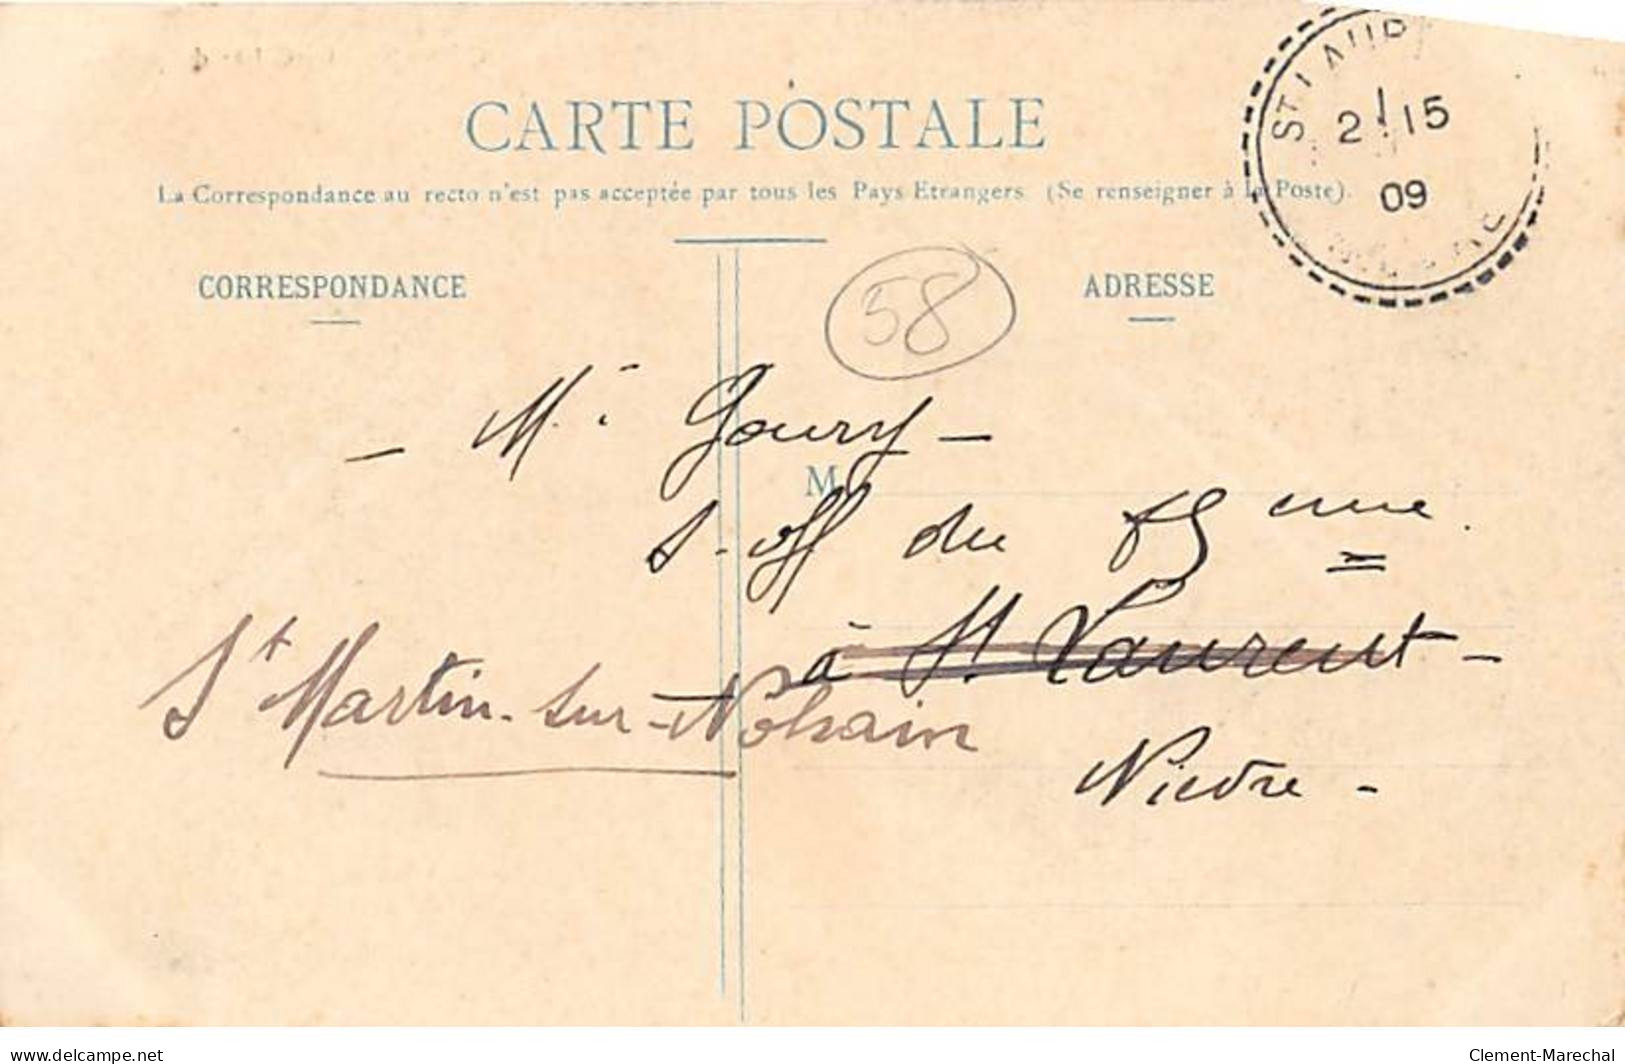 CARTE POSTALE
La Correspondance au recto n'est pas acceptée par tous les Pays Etrangers (Se renseigner à la Poste).
ST LAUR
2 15
09
CORRESPONDANCE
ADRESSE
58
- M. Goury -
M
s-off du
à St Laurent -
St Martin-sur-Nohain
Nièvre -
www.delcampe.net
Clement-Marechal